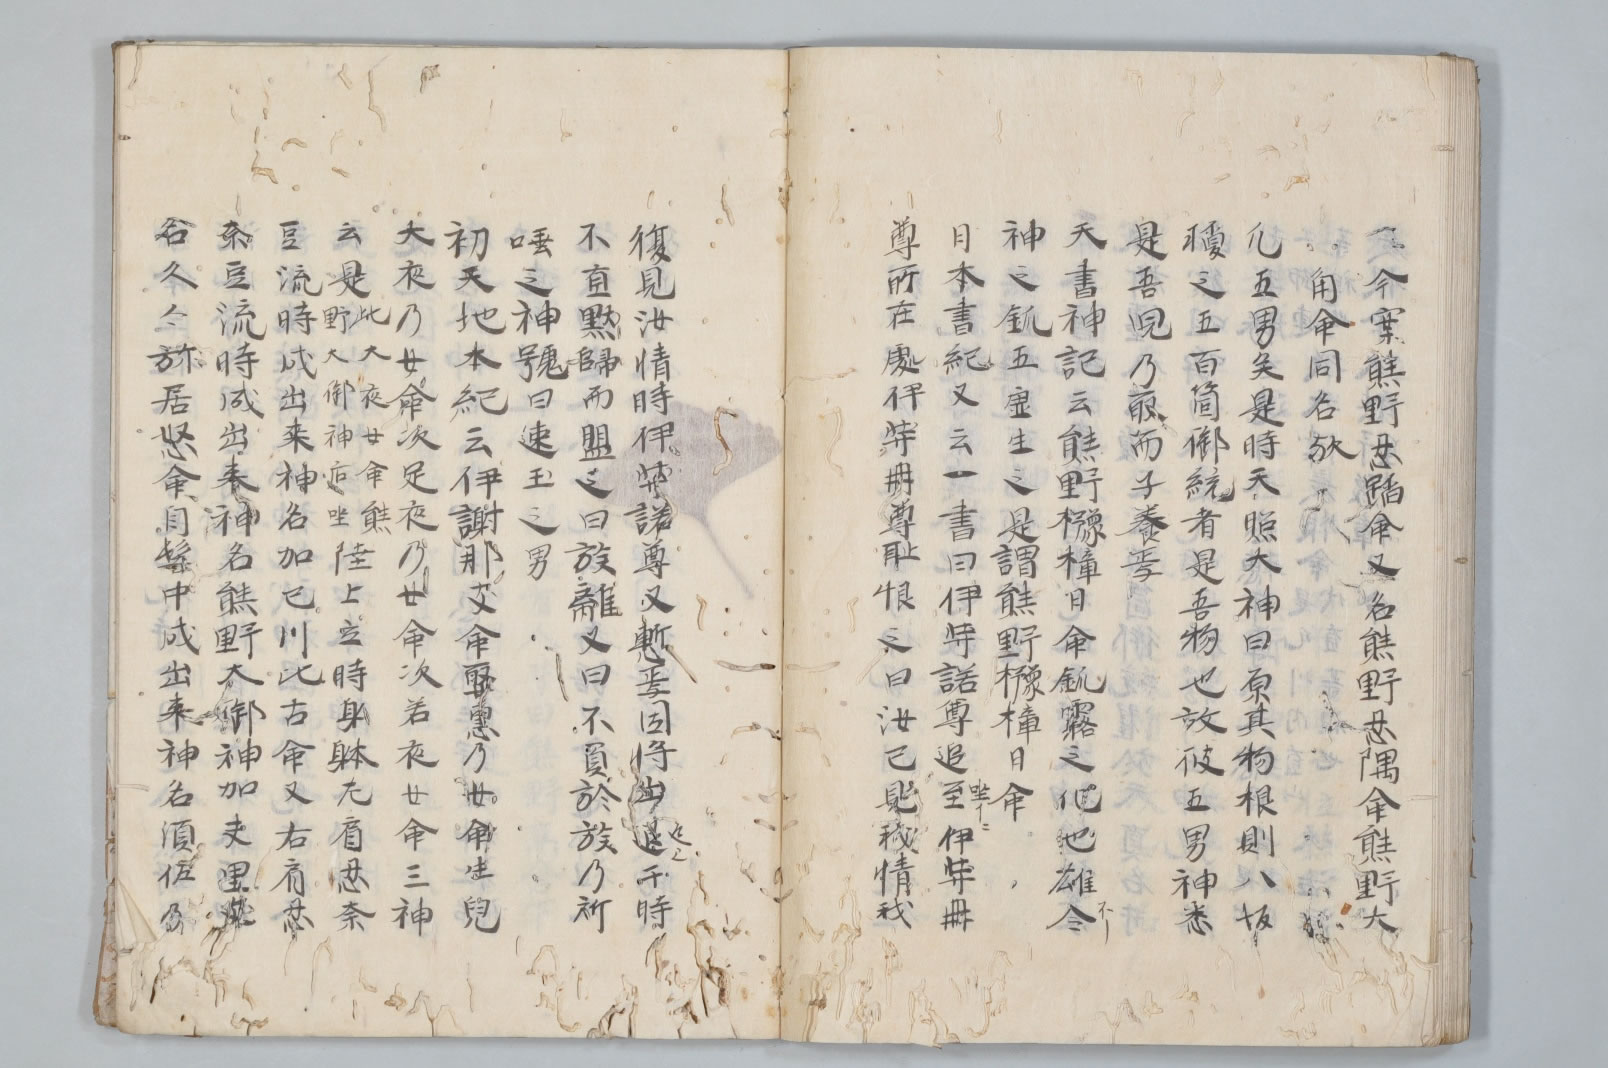 一今案熊野忍蹈命又名熊野忍隅命熊野大
角命同名欤
凡五男矣是時天照大神曰原其物根則八坂
瓊之五百箇御統者是吾物也故彼五男神悉
是吾児乃取而子養焉
天書神記云熊野櫲樟日命釩露之化也雄令
神之釩五虚生之是謂熊野櫲樟日命
日本書紀又云一書曰伊弉諾尊追至伊弉冊
尊所在處伊弉冊尊耻恨之曰汝已見我情我
復見汝情時伊弉諾尊又慙焉因将出返于時
不直黙歸而盟之曰族離又曰不負於族乃所
唾之神號曰速玉之男
初天地本紀云伊謝那支命娶恵乃女命生兒
大夜乃女命次足夜乃女命次若夜女命三神
云是此大夜女命熊野大御神后坐陸上立時身躰左肩忍奈
豆流時成出来神名加己川比古命又右肩忍
奈豆流時成出来神名熊野大御神加夫里
名久々弥居怒命自髪中成出来神名須佐乃